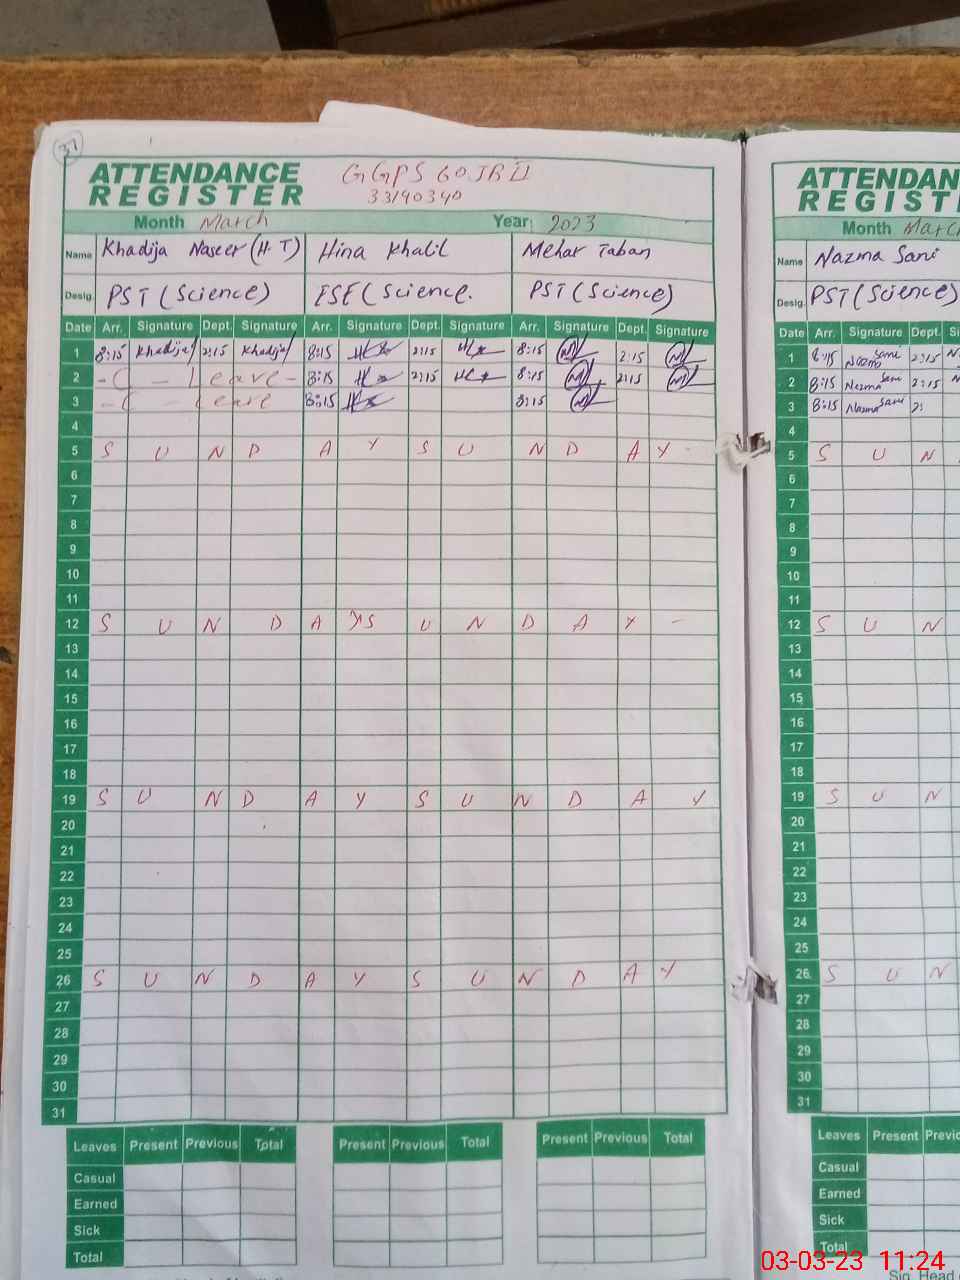 37
ATTENDANCE REGISTER
GGPS 60 JB II
33140340
Month March Year: 2023
Name Khadija Naseer (H T) Hina Khalil Mehar Taban
Desig. PST (Science) ESE (Science. PST (Science)
Date Arr. Signature Dept. Signature Arr. Signature Dept. Signature Arr. Signature Dept. Signature
1 8:15 Khadija 2:15 Khadija 8:15 2:15 8:15 2:15
2 - C - Leave - 8:15 2:15 8:15 2:15
3 - C Leave 8:15 8:15
4
5 S U N D A Y S U N D A Y
6
7
8
9
10
11
12 S U N D A Y S U N D A Y
13
14
15
16
17
18
19 S U N D A Y S U N D A Y
20
21
22
23
24
25
26 S U N D A Y S U N D A Y
27
28
29
30
31
Leaves Present Previous Total Present Previous Total Present Previous Total
Casual
Earned
Sick
Total
ATTENDAN
REGIST
Month March
Name Nazma Sani
Desig. PST (Science)
Date Arr. Signature Dept.
1 8:15 Nazma Sani 2:15
2 8:15 Nazma Sani 2:15
3 8:15 Nazma Sani 2:
4
5 S U N
6
7
8
9
10
11
12 S U N
13
14
15
16
17
18
19 S U N
20
21
22
23
24
25
26 S U N
27
28
29
30
31
Leaves Present Previo
Casual
Earned
Sick
Total
03-03-23 11:24
Sig. Head